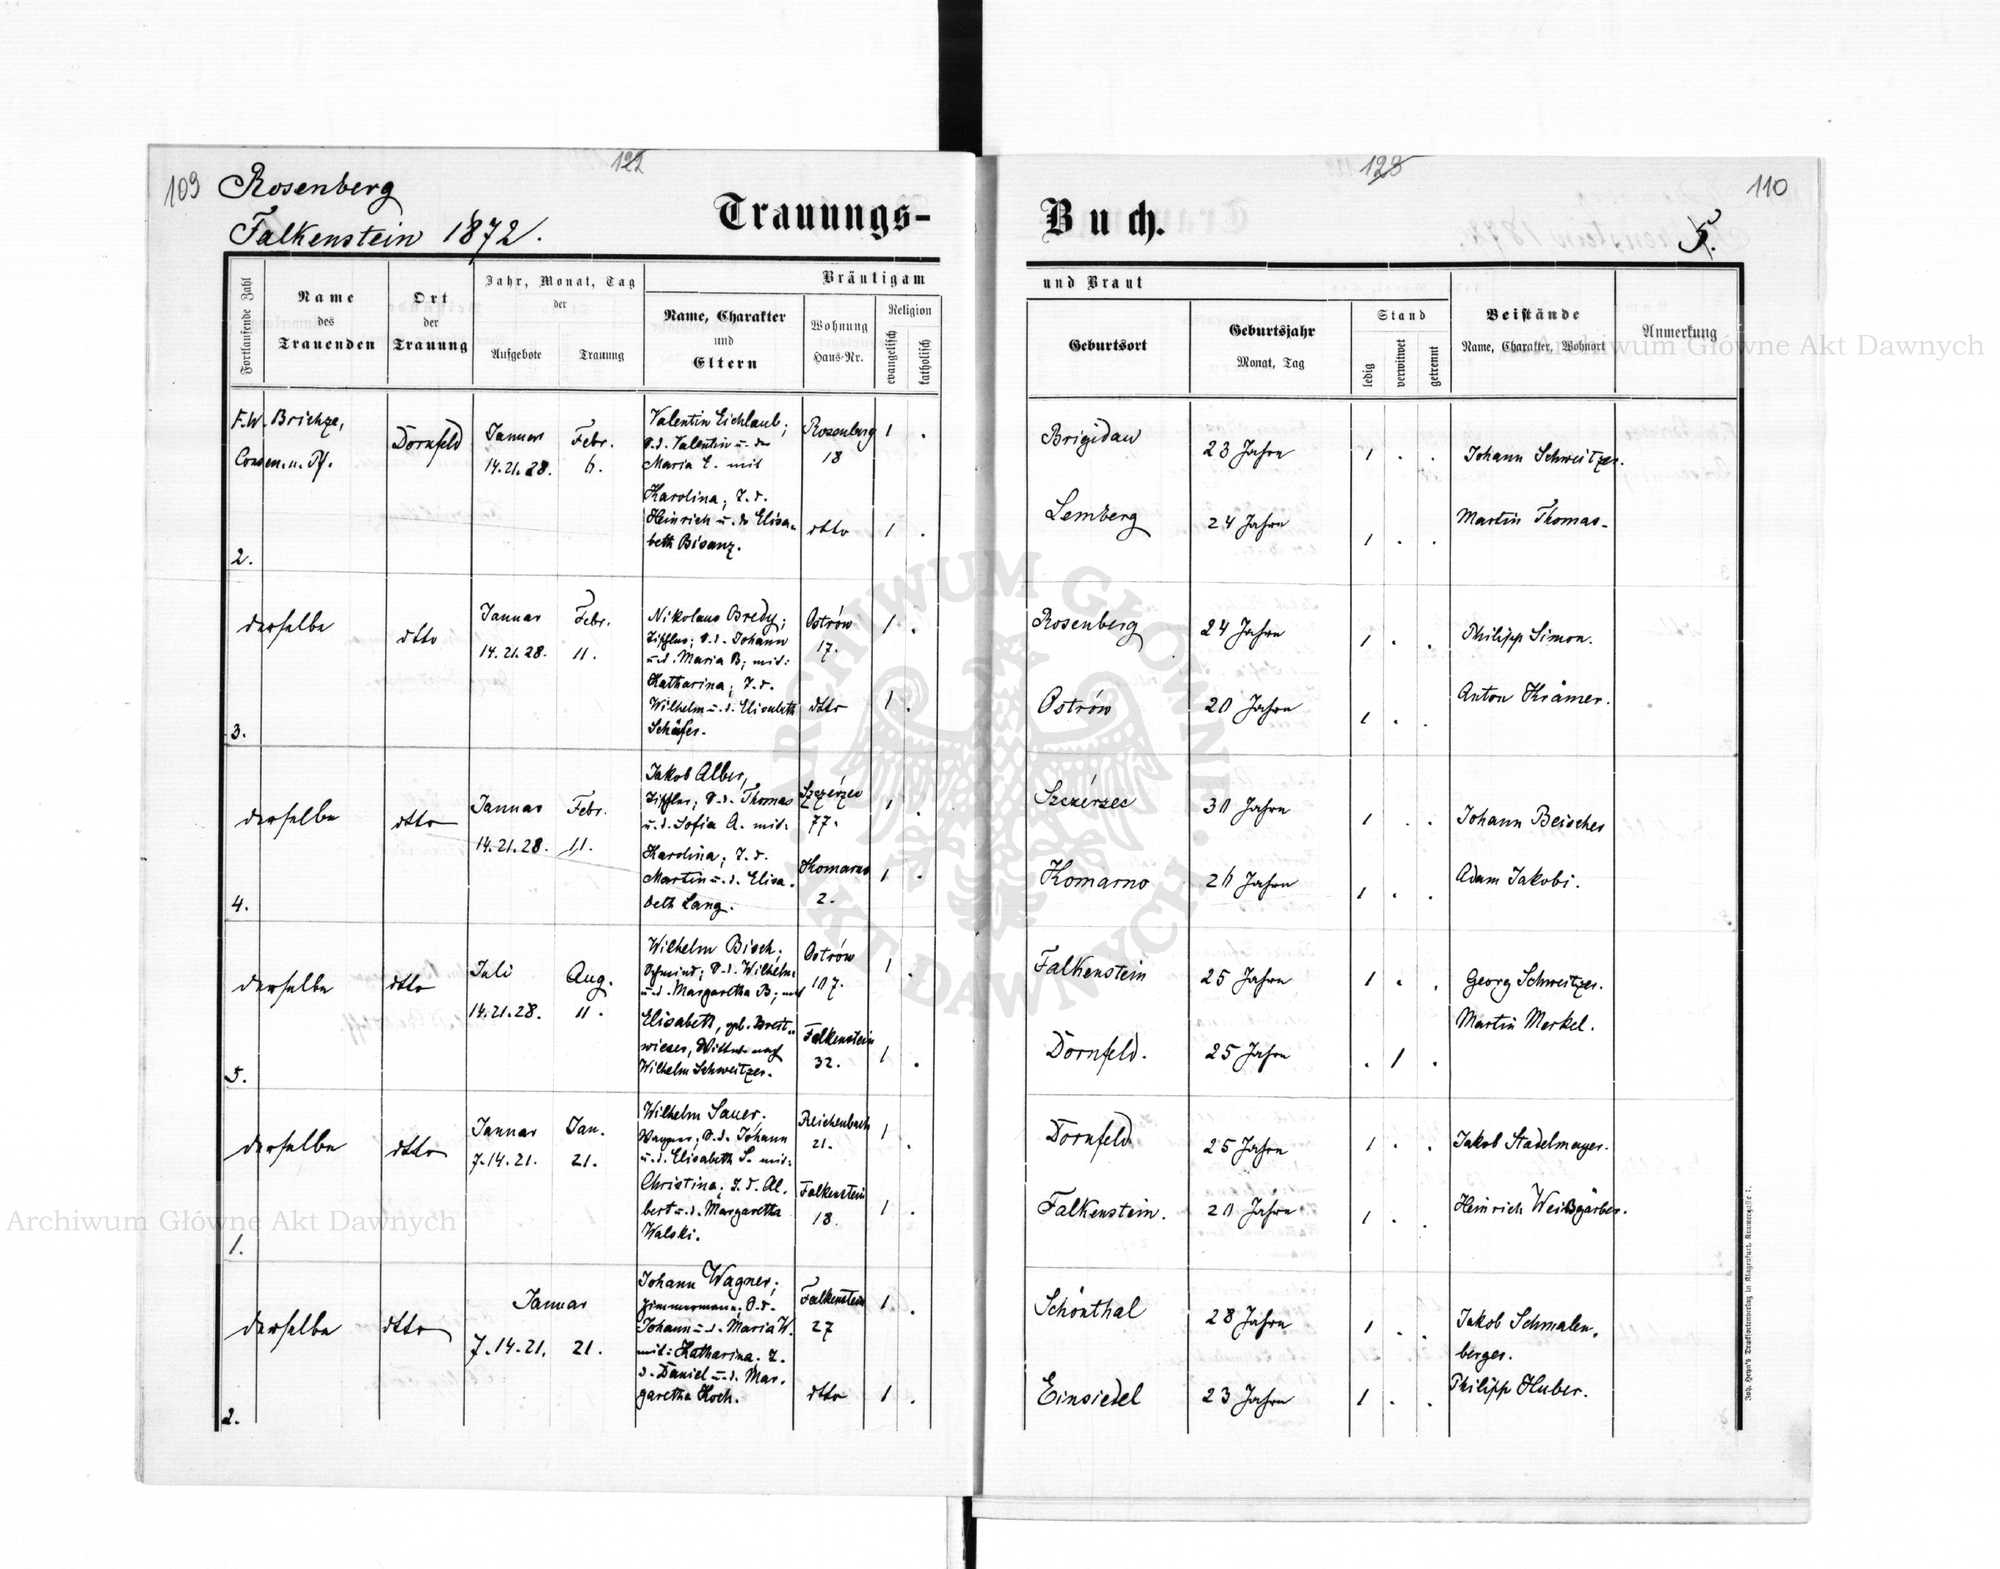 109
122
Rosenberg
Falkenstein 1872.
Trauungs-
Fortlaufende Zahl
Name
des
Trauenden
Ort
der
Trauung
Jahr, Monat, Tag
der
Aufgebote
Trauung
Bräutigam
Name, Charakter
und
Eltern
Wohnung
Haus-Nr.
Religion
evangelisch
katholisch
F.W. Brichze,
Dornfeld
Januar
14.21.28.
Febr.
6.
Valentin Eichlaub;
S.d. Valentin u. der
Maria E. mit
Rosenberg
18
1 .
Karolina; T.d.
Heinrich u. d. Elisa-
beth Bisanz.
dtto
1 .
2.
derselbe
dtto
Januar
14.21.28.
Febr.
11.
Nikolaus Bredy;
S.d. Johann
u.d. Maria B; mit:
Ostrów
17.
1 .
Katharina; T.d.
Wilhelm u.d. Elisabeth
Schäfer.
dtto
1 .
3.
derselbe
dtto
Januar
14.21.28.
Febr.
11.
Jakob Alber,
S.d. Thomas
u.d. Sofia A. mit:
Szczérzec
77.
1 .
Karolina; T.d.
Martin u.d. Elisa-
beth Lang.
Komarno
2.
1 .
4.
derselbe
dtto
Juli
14.21.28.
Aug.
11.
Wilhelm Bisch,
S.d. Wilhelm
u.d. Margaretha B; mit
Ostrów
107.
1 .
Elisabeth, geb. Brest-
wieser, Wittwe nach
Wilhelm Schweitzer.
Falkenstein
32.
1 .
5.
derselbe
dtto
Januar
7.14.21.
Jan.
21.
Wilhelm Sauer.
Wagner; S.d. Johann
u.d. Elisabeth S. mit:
Reichenbach
21.
1 .
Christina; T.d. Al-
bert u.d. Margaretha
Walski.
Falkenstein
18.
1 .
1.
derselbe
dtto
Januar
7.14.21.
21.
Johann Wagner;
Zimmermann; S.d.
Johann u.d. Maria W.
mit: Katharina. T.
d. Daniel u.d. Mar-
garetha Koch.
Falkenstein
27
1 .
dtto
1 .
2.
123
110
5.
Buch.
und Braut
Geburtsort
Geburtsjahr
Monat, Tag
Stand
ledig
verwitwet
getrennt
Beistände
Name, Charakter, Wohnort
Anmerkung
Brigidau
23 Jahre
1 . .
Johann Schweitzer.
Lemberg
24 Jahre
1 . .
Martin Thomas.
Rosenberg
24 Jahre
1 . .
Philipp Simon.
Ostrów
20 Jahre
1 . .
Anton Krämer.
Szczérzec
30 Jahre
1 . .
Johann Beischer
Komarno
26 Jahre
1 . .
Adam Jakobi.
Falkenstein
25 Jahre
1 . .
Georg Schweitzer.
Martin Merkel.
Dornfeld.
25 Jahre
. 1 .
Dornfeld
25 Jahre
1 . .
Jakob Stadelmayer.
Falkenstein.
20 Jahre
1 . .
Heinrich Weißgärber.
Schönthal
28 Jahre
1 . .
Jakob Schmalen-
berger.
Einsiedel
23 Jahre
1 . .
Philipp Huber.
Archiwum Główne Akt Dawnych
Archiwum Główne Akt Dawnych
ARCHIWUM GŁÓWNE AKT DAWNYCH